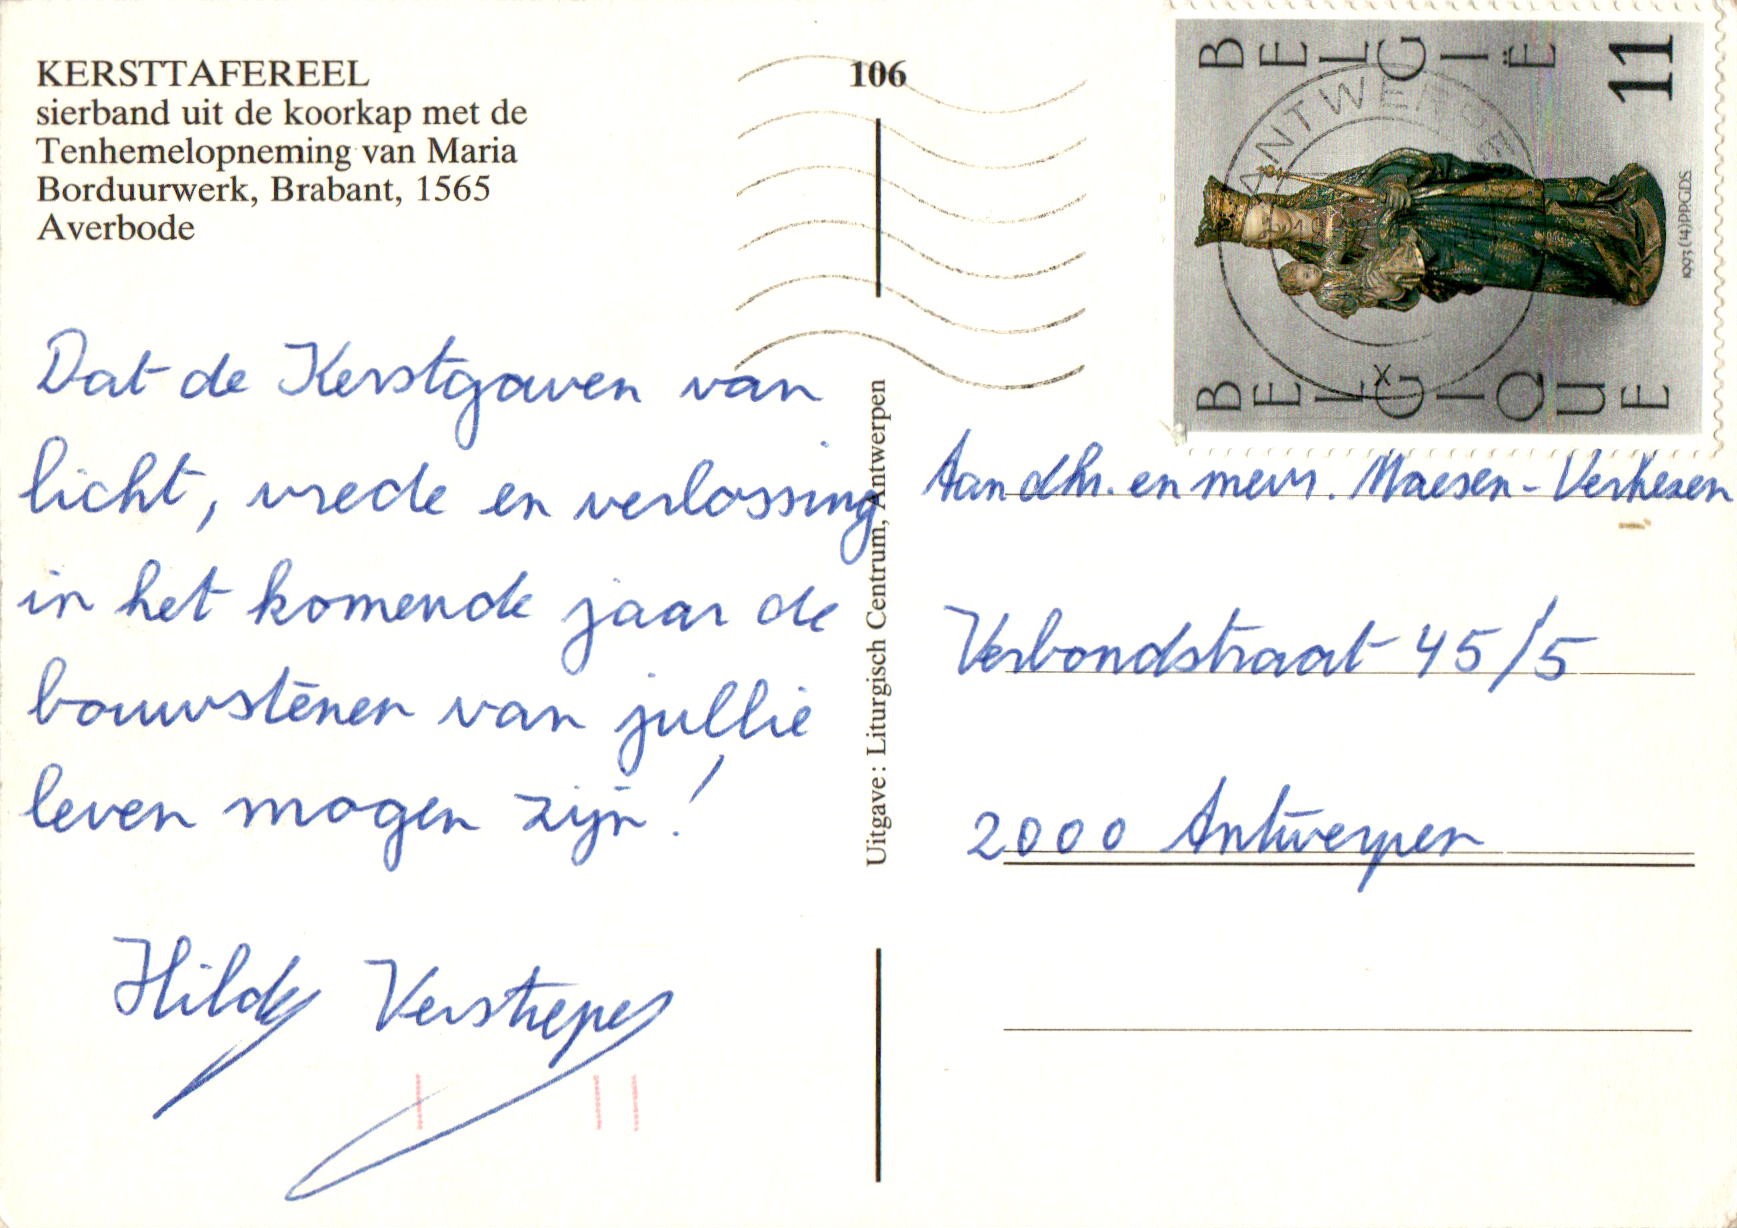 KERSTTAFEREEL
sierband uit de koorkap met de
Tenhemelopneming van Maria
Borduurwerk, Brabant, 1565
Averbode
106
Dat de Kerstgaven van
licht, vrede en verlossing
in het komende jaar de
bouwstenen van jullie
leven mogen zijn!
Hilde Verstrepen
Uitgave: Liturgisch Centrum, Antwerpen
BELGIË 11
BELGIQUE
1993 (14) PP.GDS
ANTWERPEN
X
Aan dhr. en mevr. Maesen - Verheyen
Verbondstraat 45/5
2000 Antwerpen